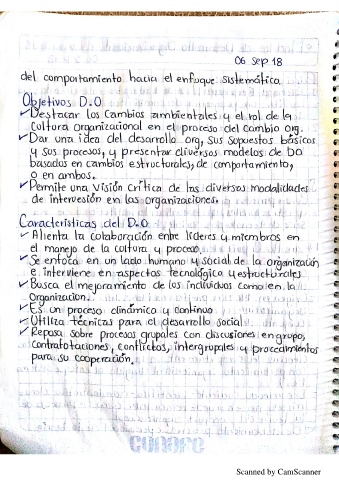 06 sep 18
del comportamiento hacia el enfoque sistemática
Objetivos D.O
✓Destacar los Cambios ambientales y el rol de la
Cultura organizacional en el proceso del cambio org.
✓Dar una idea del desarrollo org, sus supuestos básicos
y sus procesos, y presentar diversos modelos de DO
basados en cambios estructurales, de comportamiento,
o en ambos.
✓Permite una Visión Crítica de las diversas modalidades
de intervesión en las organizaciones.
Características del D.O
✓Alienta la colaboración entre líderes y miembros en
el manejo de la cultura y proceso.
✓Se enfoca en un lado humano y social de la organización
e interviene en aspectos tecnológica y estructurales
✓Busca el mejoramiento de los individuos como en la
Organización.
✓Es un proceso dinámico y continuo
✓Utiliza técnicas para el desarrollo social
✓Reposa sobre procesos grupales con discusiones en grupo,
confrotaciones, conflictos, intergrupales y procedimientos
para su cooperación.
Scanned by CamScanner